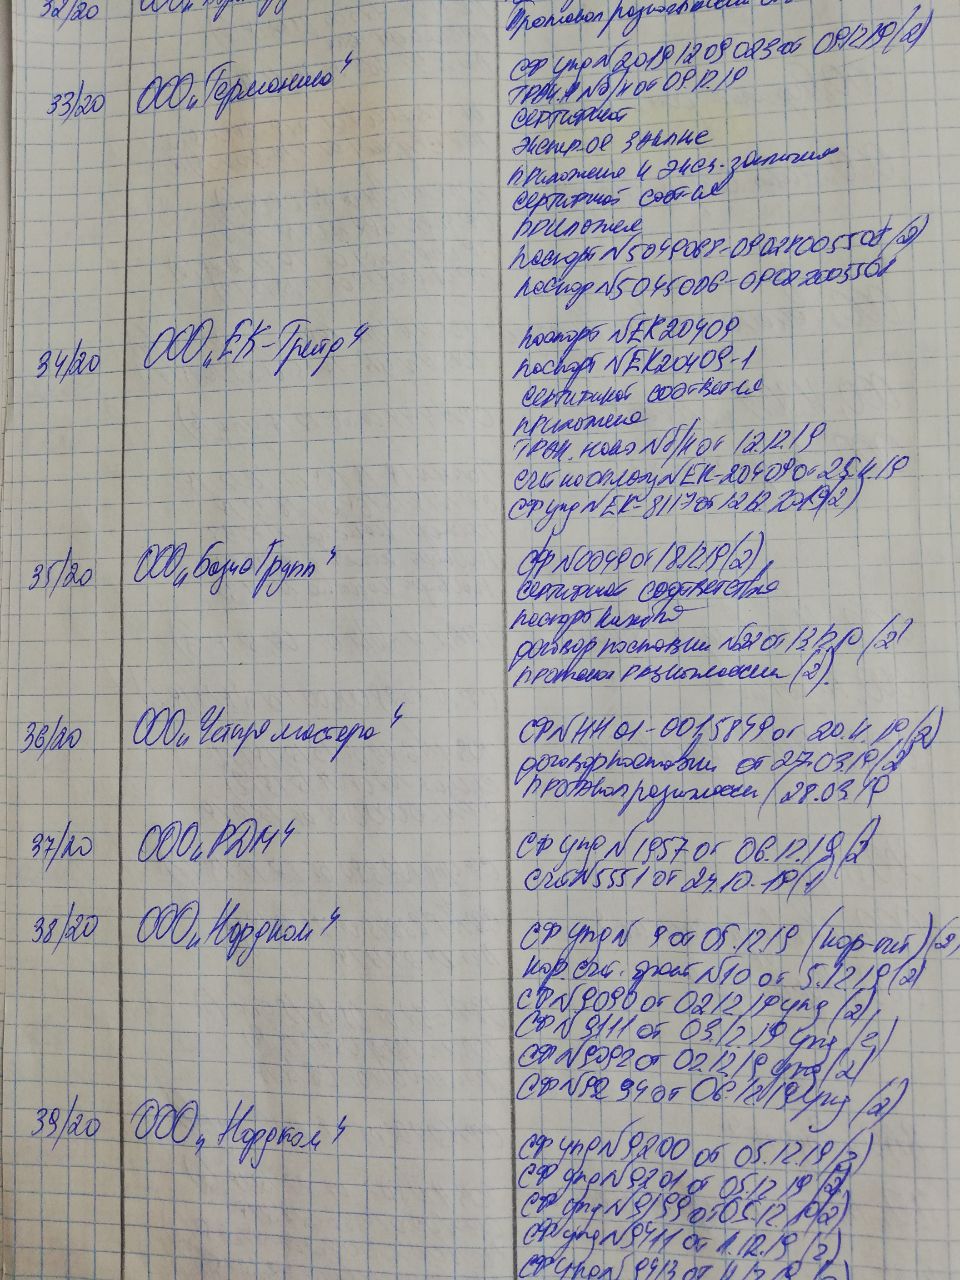 32/20 ООО
Протокол
33/20 ООО „Термоникс“ СФ упд N 20191209023 от 09.12.19 (2)
Трен. N б/н от 09.12.19
Сертификат
приложение к эксп.
сертификат соот-ия
приложен
паспорт N
паспор N
34/20 ООО „ЕК-Трейд“ паспорт N ЕК20409
паспорт N ЕК20409-1
сертификат соответ-ия
приложение
Трен. накл N б/н от 12.12.19
счет на оплату N ЕК-20409 от 25.11.19
СФ упд N ЕК-8117 от 12.12.2019 (2)
35/20 ООО „Базис Групп“ СФ N 0049 от 18.12.19 (2)
сертификат соответствия
паспорт
договор поставки от (2)
протокол разногласий (2)
36/20 ООО „Четыре мастера“ СФ N НН 01-0015849 от 20.11.19 (2)
договор поставки от 27.03.19 (2
протокол разногласий (28.03.19
37/20 ООО „РДМ“ СФ упд N 1957 от 06.12.19 (2
Счет N 5551 от 24.10.19 (1)
38/20 ООО „Нордком“ СФ упд N 9 от 05.12.19 (кор-тит) (2)
кор. счет. факт N 10 от 5.12.19 (2)
СФ N 9090 от 02.12.19 упд (2)
СФ N 9111 от 03.12.19 упд (2)
СФ N 9092 от 02.12.19 упд (2)
СФ N 9294 от 06.12.19 упд (2)
39/20 ООО „Нордком“ СФ упд N 9200 от 05.12.19 (2)
СФ упд N 9201 от 05.12.19 (2)
СФ упд N 9199 от 05.12.19 (2)
СФ упд N 9411 от 11.12.19 (2)
СФ упд N 9413 от